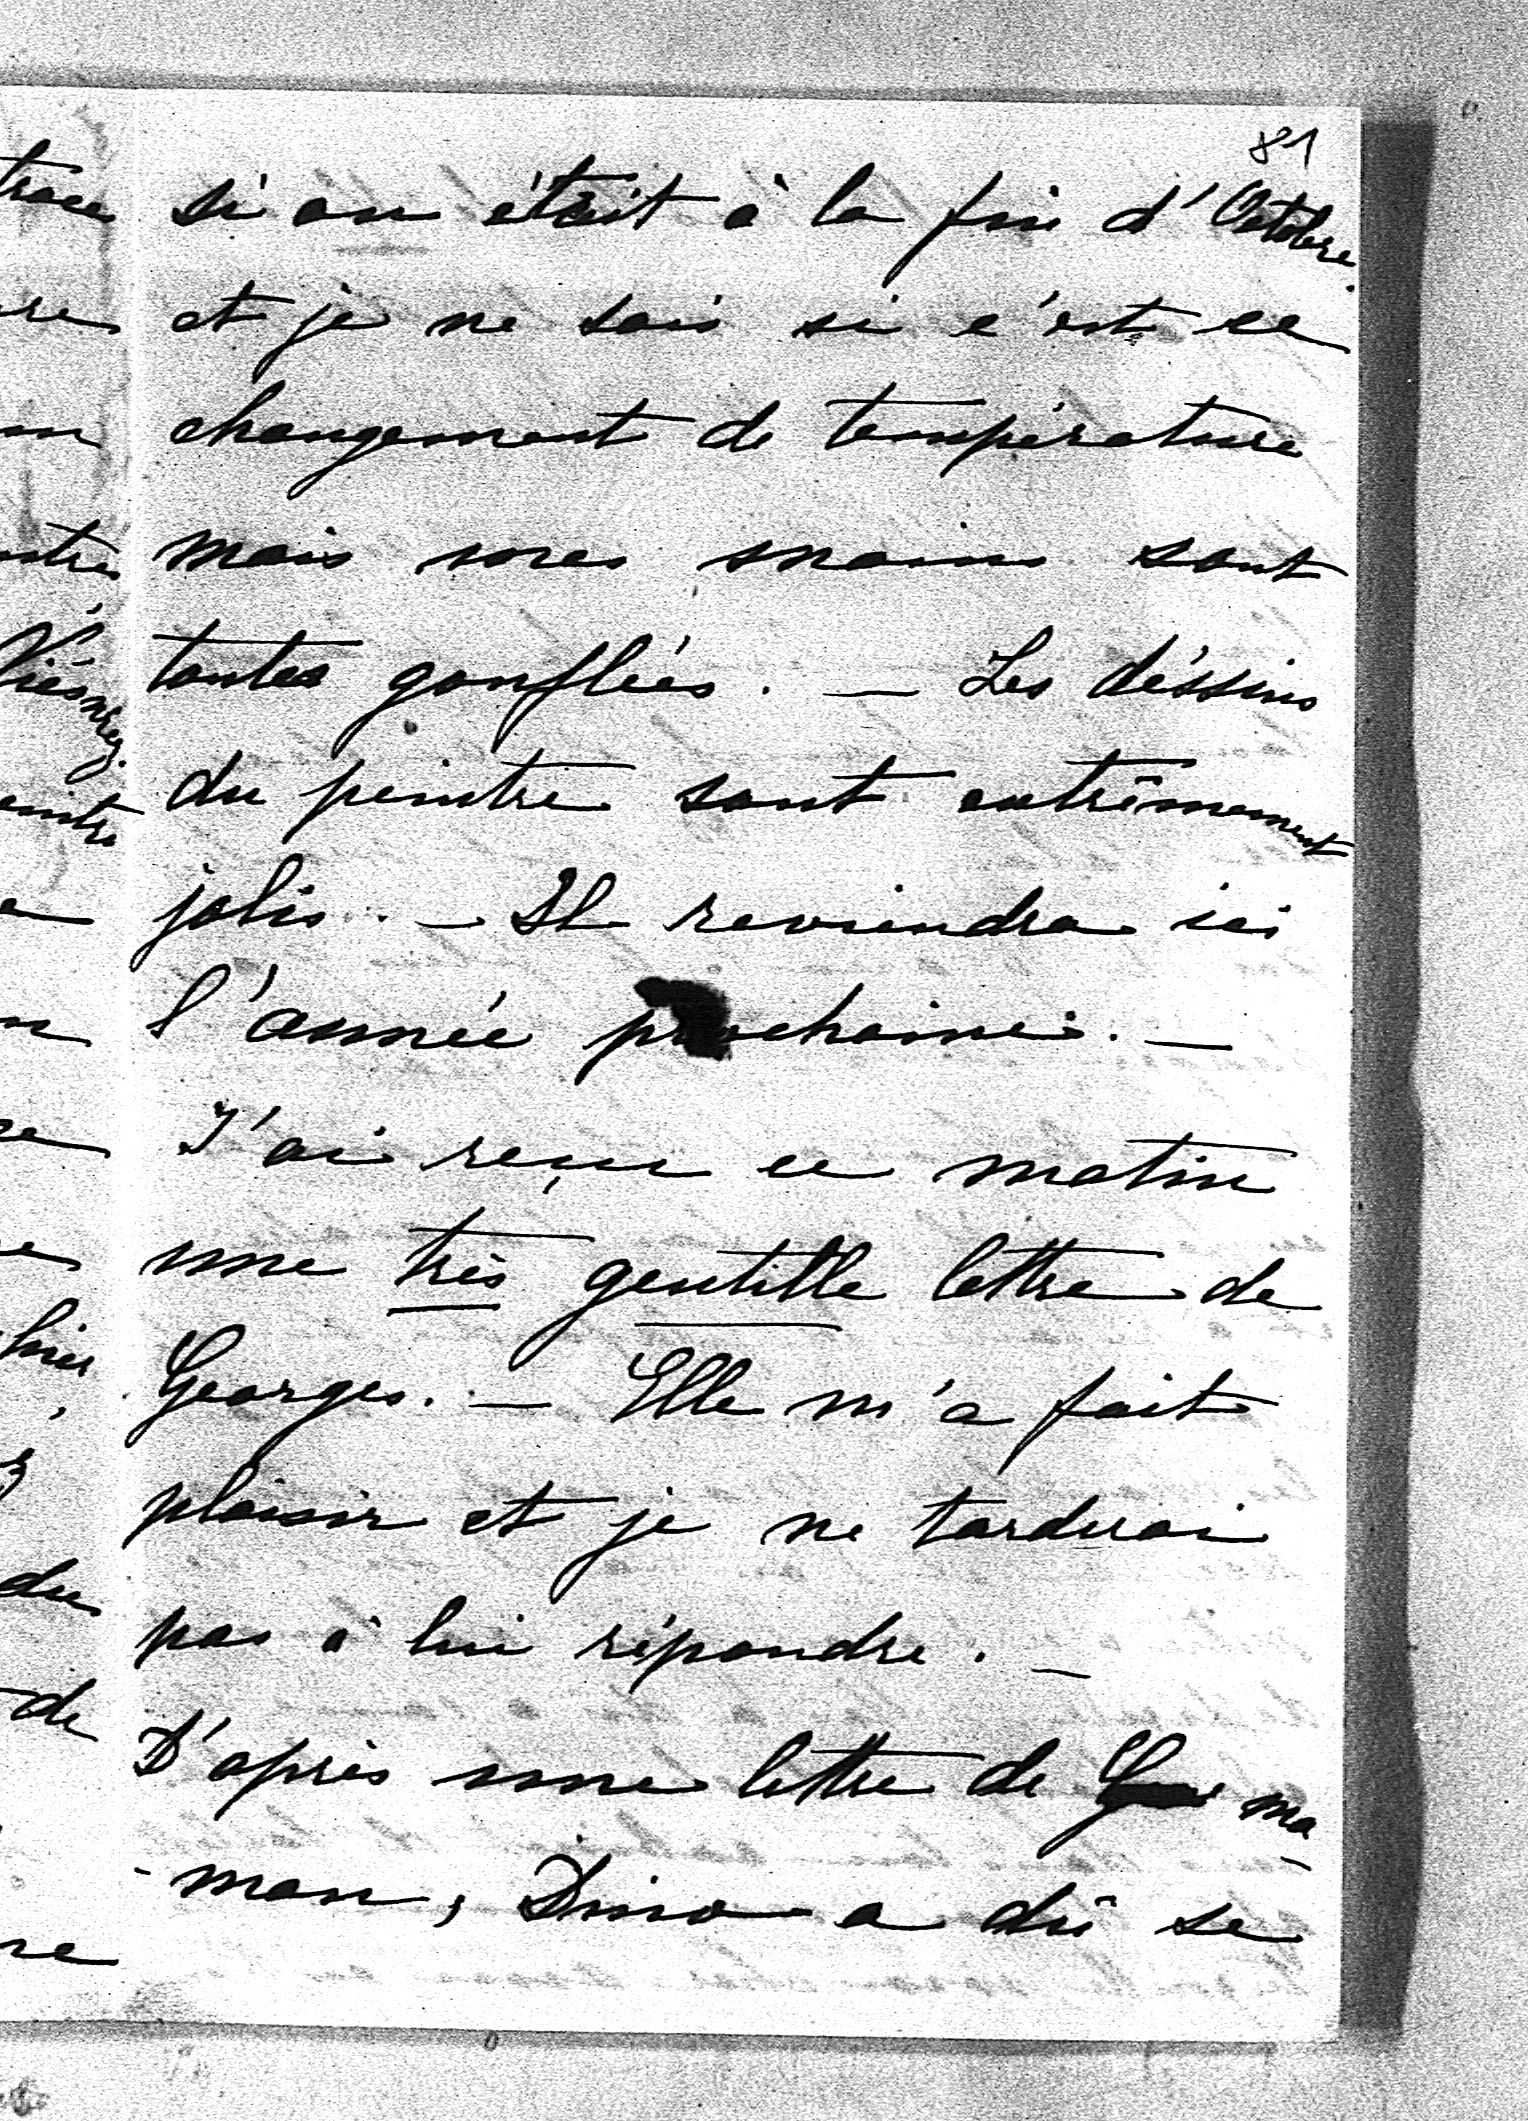 81
si on était à la fin d'Octobre.
et je ne sais si c'est ce
changement de température
mais mes mains sont
toutes gonflées. — Les déssins
du peintre sont extrêmement
jolis. — Il reviendra ici
l'année prochaine. —
J'ai reçu ce matin
une très gentille lettre de
Georges. — Elle m'a fait
plaisir et je ne tarderai
pas à lui répondre. —
D'après une lettre de ma-
-man, Dino a dû se